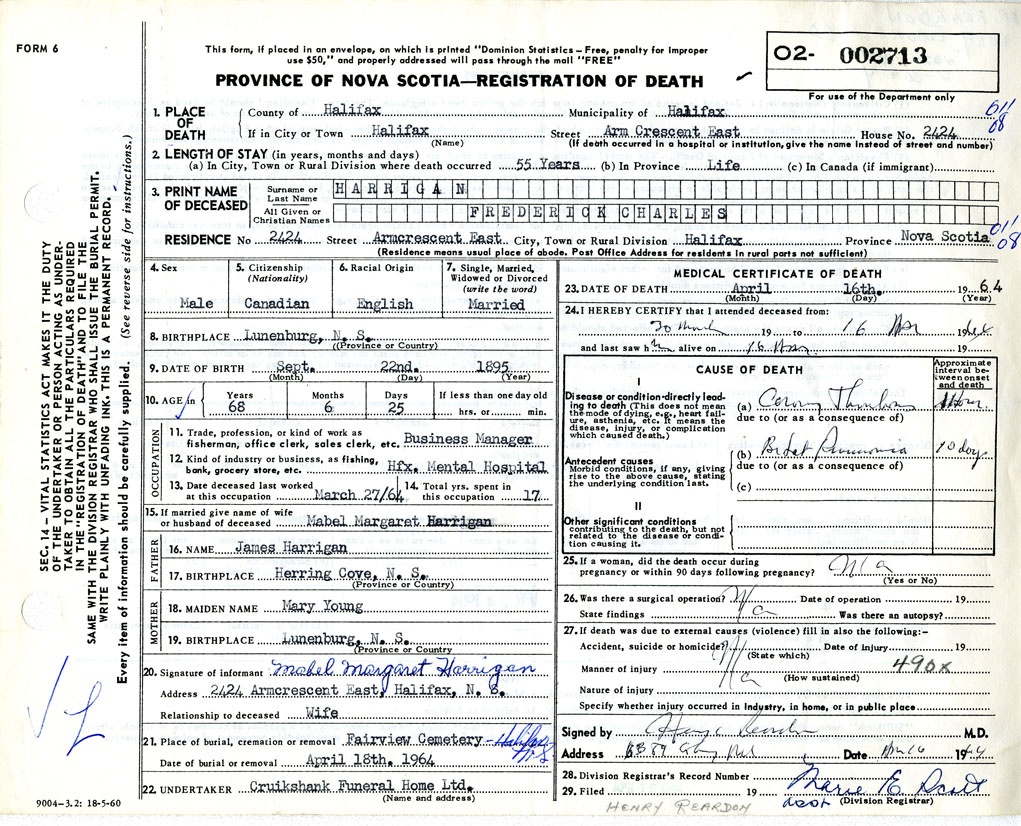 FORM 6
This form, if placed in an envelope, on which is printed "Dominion Statistics – Free, penalty for improper
use $50," and properly addressed will pass through the mail "FREE"
PROVINCE OF NOVA SCOTIA—REGISTRATION OF DEATH
02- 002713
For use of the Department only
SEC. 14 – VITAL STATISTICS ACT MAKES IT THE DUTY
OF THE UNDERTAKER OR PERSON ACTING AS UNDER-
TAKER TO OBTAIN ALL THE PARTICULARS REQUIRED
IN THE "REGISTRATION OF DEATH" AND TO FILE THE
SAME WITH THE DIVISION REGISTRAR WHO SHALL ISSUE THE BURIAL PERMIT.
WRITE PLAINLY WITH UNFADING INK. THIS IS A PERMANENT RECORD.
Every item of information should be carefully supplied. (See reverse side for instructions.)
1. PLACE OF DEATH
County of Halifax Municipality of Halifax
If in City or Town Halifax Street Arm Crescent East House No. 2424
(Name) (If death occurred in a hospital or institution, give the name instead of street and number)
01/08
2. LENGTH OF STAY (in years, months and days)
(a) In City, Town or Rural Division where death occurred 55 Years (b) In Province Life (c) In Canada (if immigrant)
3. PRINT NAME OF DECEASED
Surname or Last Name HARRIGAN
All Given or Christian Names FREDERICK CHARLES
RESIDENCE No 2424 Street Armcrescent East City, Town or Rural Division Halifax Province Nova Scotia 01/08
(Residence means usual place of abode. Post Office Address for residents in rural parts not sufficient)
4. Sex Male
5. Citizenship (Nationality) Canadian
6. Racial Origin English
7. Single, Married, Widowed or Divorced (write the word) Married
8. BIRTHPLACE Lunenburg, N. S.
(Province or Country)
9. DATE OF BIRTH Sept. 22nd. 1895
(Month) (Day) (Year)
10. AGE in Years 68 Months 6 Days 25 If less than one day old hrs. or min.
OCCUPATION
11. Trade, profession, or kind of work as
fisherman, office clerk, sales clerk, etc. Business Manager
12. Kind of industry or business, as fishing,
bank, grocery store, etc. Hfx. Mental Hospital
13. Date deceased last worked at this occupation March 27/64
14. Total yrs. spent in this occupation 17
15. If married give name of wife
or husband of deceased Mabel Margaret Harrigan
FATHER
16. NAME James Harrigan
17. BIRTHPLACE Herring Cove, N. S.
(Province or Country)
MOTHER
18. MAIDEN NAME Mary Young
19. BIRTHPLACE Lunenburg, N. S.
(Province or Country
20. Signature of informant Mabel Margaret Harrigan
Address 2424 Armcrescent East, Halifax, N. S.
Relationship to deceased Wife
21. Place of burial, cremation or removal Fairview Cemetery - Halifax N.S
Date of burial or removal April 18th. 1964
22. UNDERTAKER Cruikshank Funeral Home Ltd.
(Name and address)
9004–3.2: 18-5-60
MEDICAL CERTIFICATE OF DEATH
23. DATE OF DEATH April 16th. 1964
(Month) (Day) (Year)
24. I HEREBY CERTIFY that I attended deceased from:
30 March 19 to 16 19
and last saw him alive on 16 19
CAUSE OF DEATH
Approximate interval between onset and death
I
Disease or condition directly leading to death (This does not mean the mode of dying, e.g., heart failure, asthenia, etc. It means the disease, injury, or complication which caused death.)
(a)
due to (or as a consequence of)
Antecedent causes
Morbid conditions, if any, giving rise to the above cause, stating the underlying condition last.
(b) Pneumonia 10 days
due to (or as a consequence of)
(c)
II
Other significant conditions
contributing to the death, but not related to the disease or condition causing it.
25. If a woman, did the death occur during
pregnancy or within 90 days following pregnancy? N/a
(Yes or No)
26. Was there a surgical operation? N/a Date of operation 19
State findings Was there an autopsy?
27. If death was due to external causes (violence) fill in also the following:–
Accident, suicide or homicide? N/a Date of injury 19
(State which)
Manner of injury 490x
(How sustained)
Nature of injury
Specify whether injury occurred in industry, in home, or in public place
Signed by M.D.
Address Date 16 1964
28. Division Registrar's Record Number
29. Filed 19 Marie E Scott
(Division Registrar)
HENRY REARDON